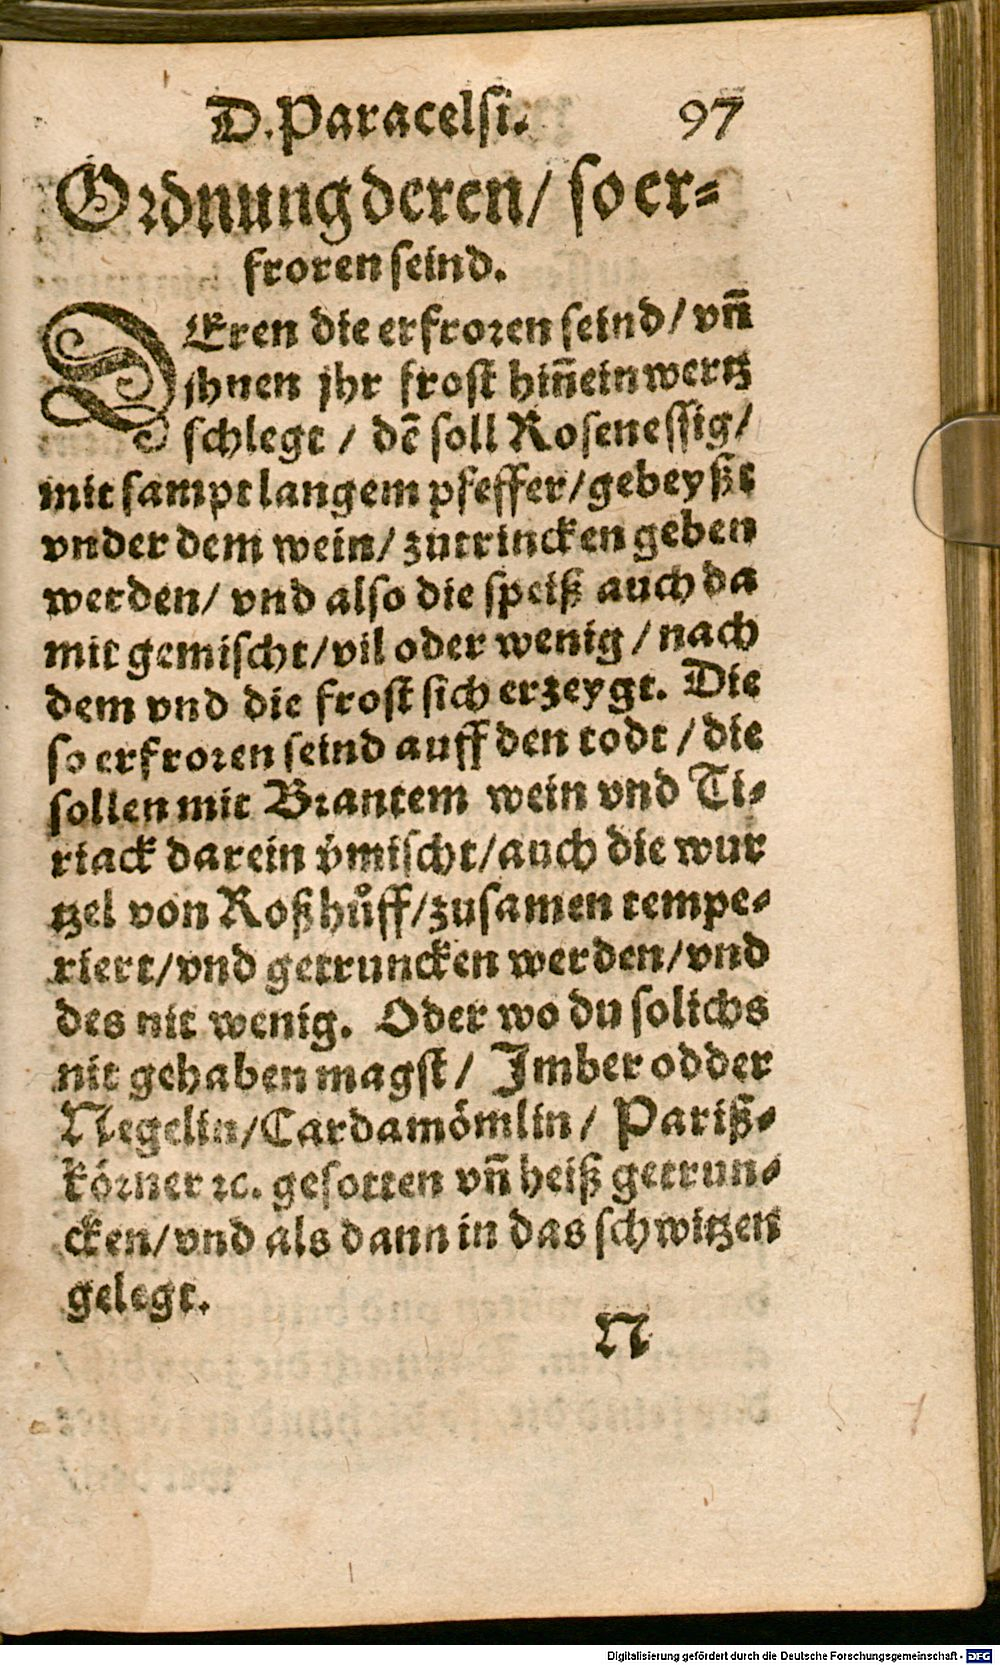 D. Paracelsi. 97
Ordnung deren/ so er⸗
froren seind.
DEren die erfroren seind/ vñ
jhnen jhr frost hiñeinwertz
schlegt / dē soll Rosenessig/
mit sampt langem pfeffer/gebeyßt
vnder dem wein/ zutrincken geben
werden/ vnd also die speiß auch da
mit gemischt/vil oder wenig / nach
dem vnd die frost sich erzeygt. Die
so erfroren seind auff den todt / die
sollen mit Brantem wein vnd Ti⸗
riack darein v̈mischt/auch die wur
tzel von Roßhůff/zusamen tempe⸗
riert/vnd getruncken werden/vnd
des nit wenig. Oder wo du solichs
nit gehaben magst/ Jmber odder
Negelin/Cardamömlin/ Pariß⸗
körner ꝛc. gesotten vñ heiß getrun⸗
cken/vnd als dann in das schwitzen
gelegt.
N
Digitalisierung gefördert durch die Deutsche Forschungsgemeinschaft - DFG